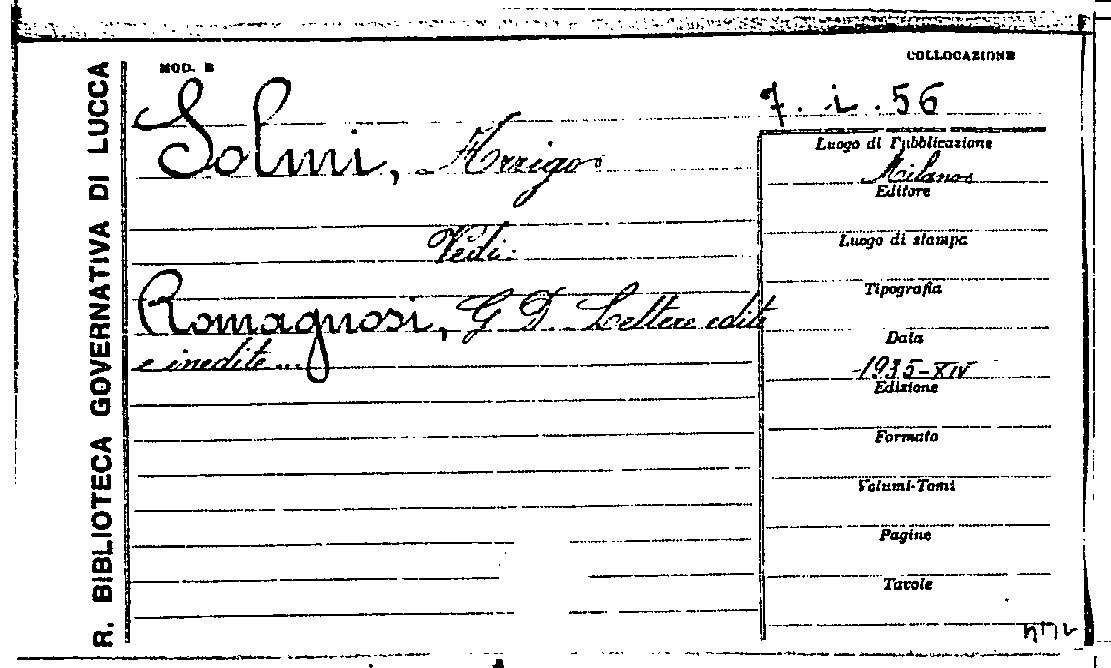 R. BIBLIOTECA GOVERNATIVA DI LUCCA
MOD. B
COLLOCAZIONE
7. i. 56
Solmi, Arrigo
Vedi:
Romagnosi, G D. Lettere edite
e inedite...
Luogo di Pubblicazione
Milano
Editore
Luogo di stampa
Tipografia
Data
1935-XIV
Edizione
Formato
Volumi-Tomi
Pagine
Tavole